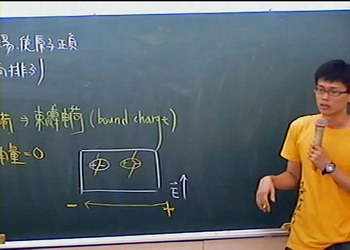 場,使原子正負
向排列
荷 ⇒ 束縛電荷 (bound charge)
量 = 0
E ↑
- +